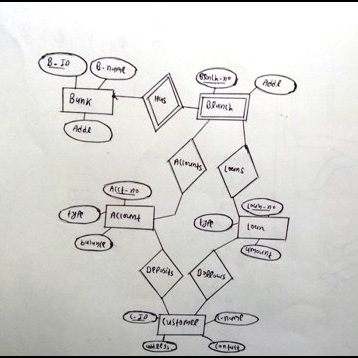 B_ID
B-name
Bank
Addl
Has
Branch-no
Addl
Branch
Accounts
Loans
Acct-no
type
Account
balance
Loan-no
type
Loan
amount
Deposits
Borrows
C-ID
C-name
Customer
address
Contact